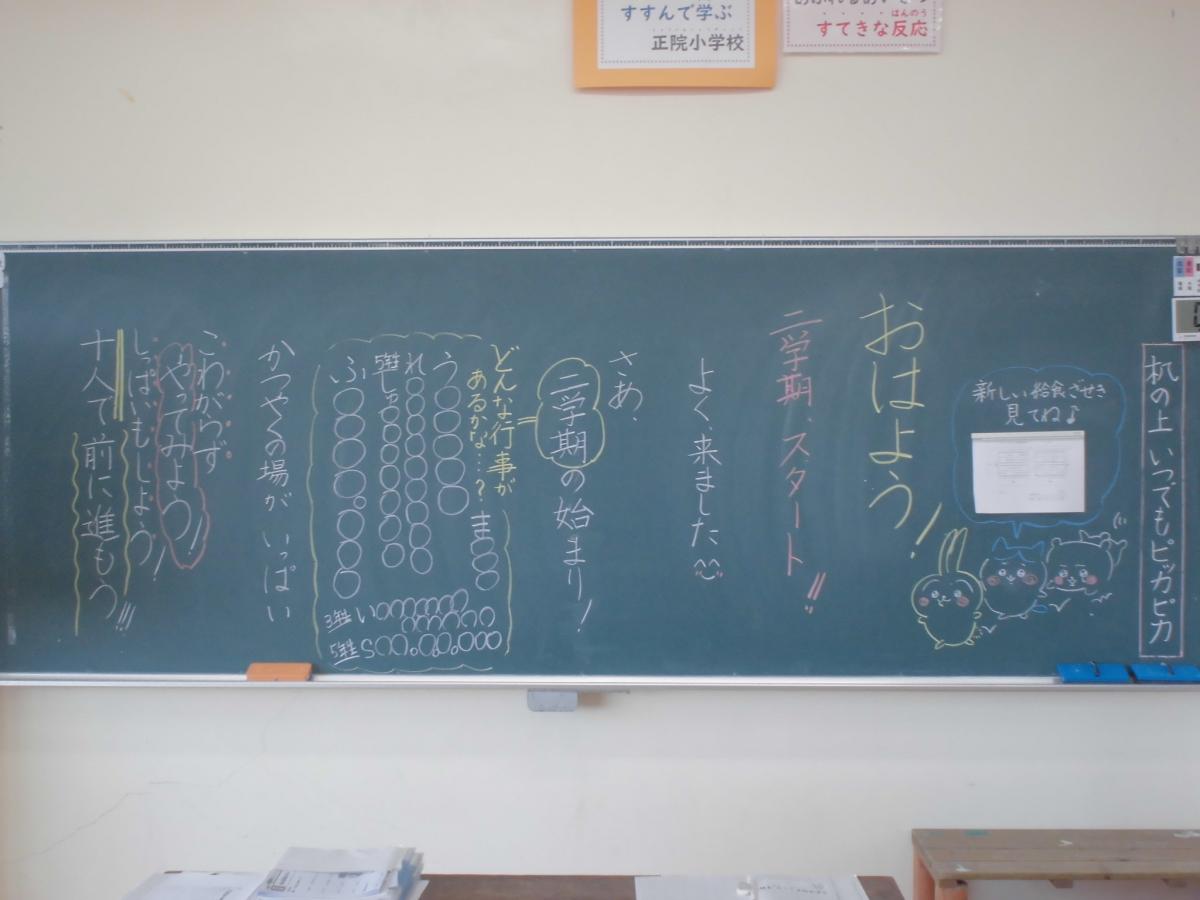 すすんで学ぶ
正院小学校
はんのう
すてきな反応
机の上 いつでもピッカピカ
新しい給食ざせき
見てね♪
おはよう!
二学期、スタート!!
よく、来ました
さあ、
二学期の始まり!
どんな行事が
あるかな…?
ま○○○
う○○○○○
れ○○○○○○○○
5年生 しゅ○○○○○○○
ふ○○○○○○○
3年生 い
5年生 S
かつやくの場が いっぱい
こわがらず
やってみよう!
しっぱいもしよう!
十人で前に進もう!!!